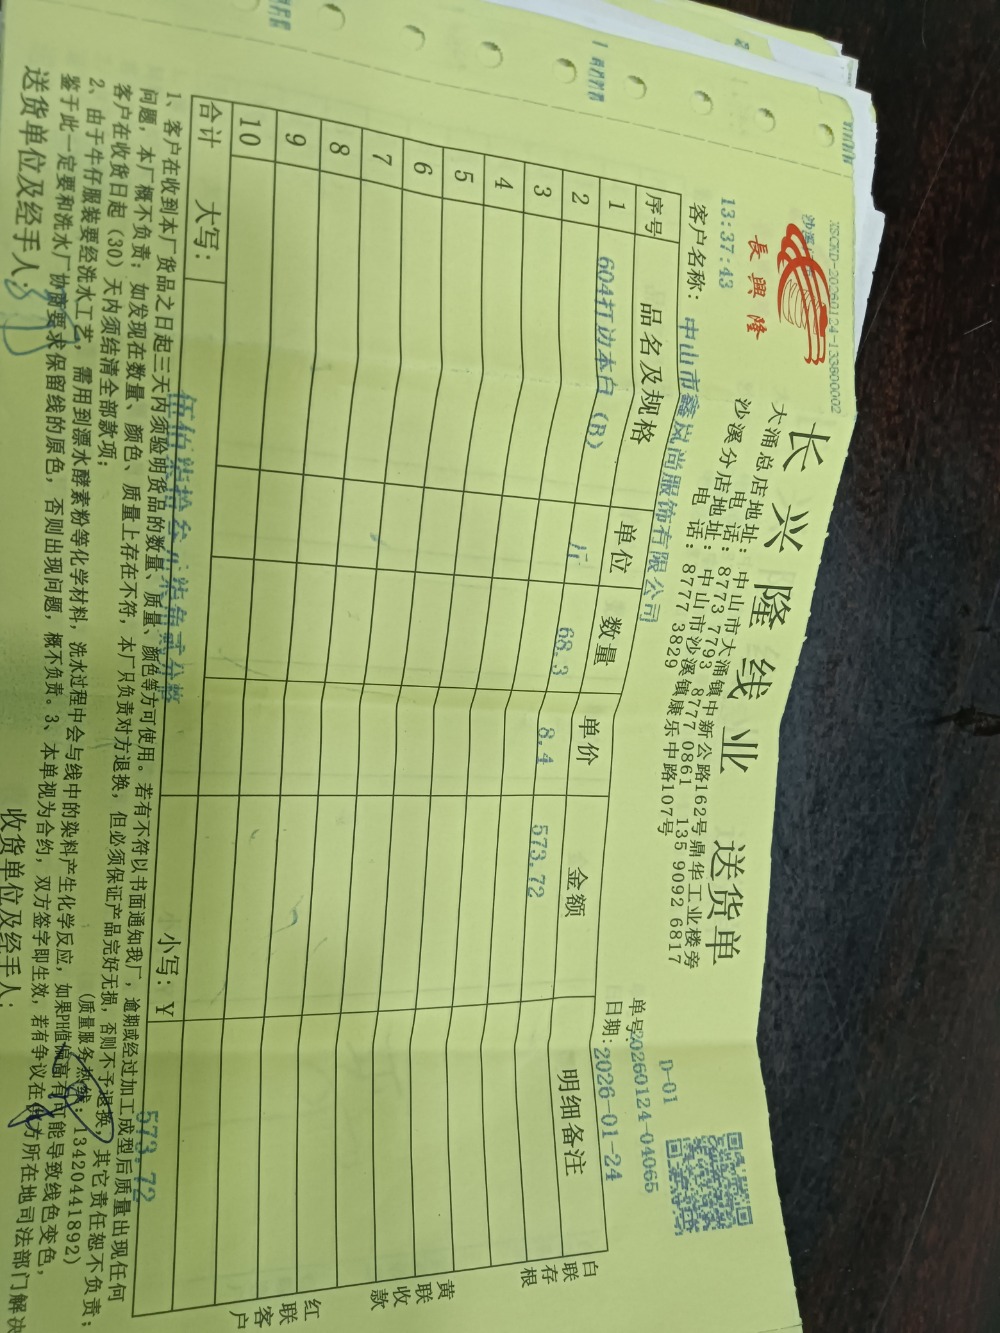 XSCKD-20260124-133800002
13:37:43
長興隆
长兴隆线业 送货单
大涌总店地址：中山市大涌镇中新公路162号鼎华工业楼旁
电 话：8773 7793 8777 0861 135 9092 6817
沙溪分店地址：中山市沙溪镇康乐中路107号
电 话：8777 3829
D-01
单号：20260124-04065
日期：2026-01-24
客户名称：中山市鑫岚尚服饰有限公司
序号 品名及规格 单位 数量 单价 金额 明细备注
1 604打边本白 (B) 斤 68.3 8.4 573.72
2
3
4
5
6
7
8
9
10
合计 大写： 伍佰柒拾叁元柒角贰分整 小写：￥ 573.72
白联存根
黄联收款
红联客户
1、客户在收到本厂货品之日起三天内须验明货品的数量、质量、颜色等方可使用。若有不符以书面通知我厂，逾期或经过加工成型后质量出现任何
问题，本厂概不负责；如发现在数量、颜色、质量上存在不符，本厂只负责对方退换，但必须保证产品完好无损，否则不予退换，其它责任恕不负责；
客户在收货日起（30）天内须结清全部款项； (质量服务热线：13420441892)
2、由于牛仔服装要经洗水工艺，需用到漂水酵素粉等化学材料，洗水过程中会与线中的染料产生化学反应，如果PH值偏高有可能导致线色变色，
鉴于此一定要和洗水厂协商要求保留线的原色，否则出现问题，概不负责。3、本单视为合约，双方签字即生效，若有争议在供方所在地司法部门解决
送货单位及经手人： 收货单位及经手人：